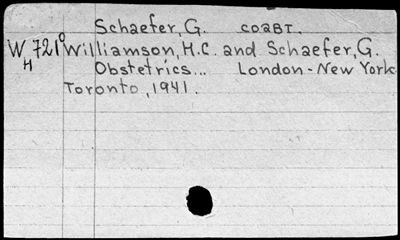 Schaefer, G. соавт.
W 721⁰ Williamson, H.C. and Schaefer, G.
H Obstetrics... London - New York
Toronto, 1941.